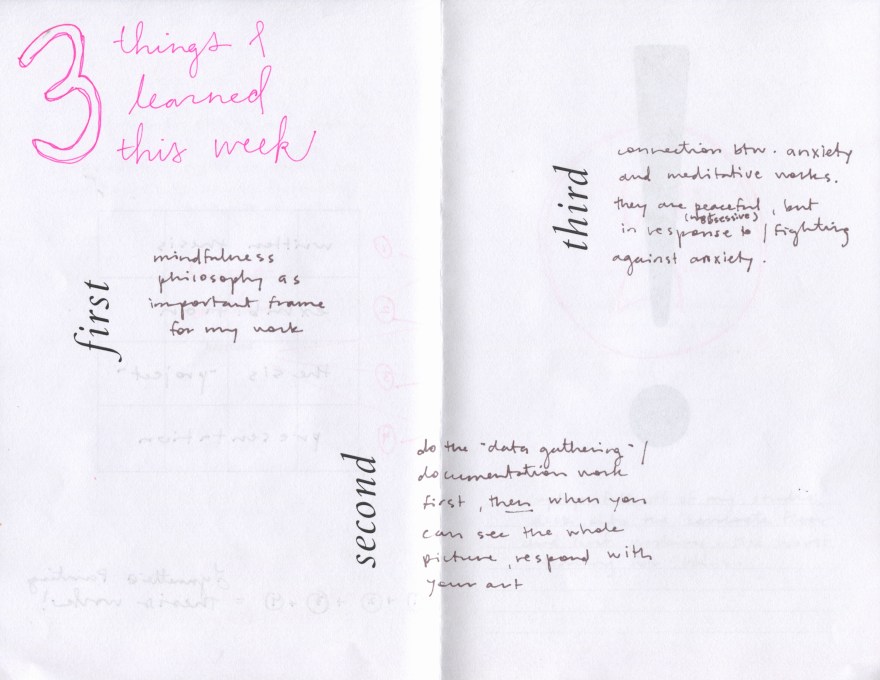 3 things I
learned
this week
first
mindfulness
philosophy as
important frame
for my work
second
do the "data gathering" /
documentation work
first, then when you
can see the whole
picture, respond with
your art
third
connection btw. anxiety
and meditative works.
they are peaceful, but
(not obsessive)
in response to / fighting
against anxiety.
written thesis
thesis "project"
presentation
thesis work!